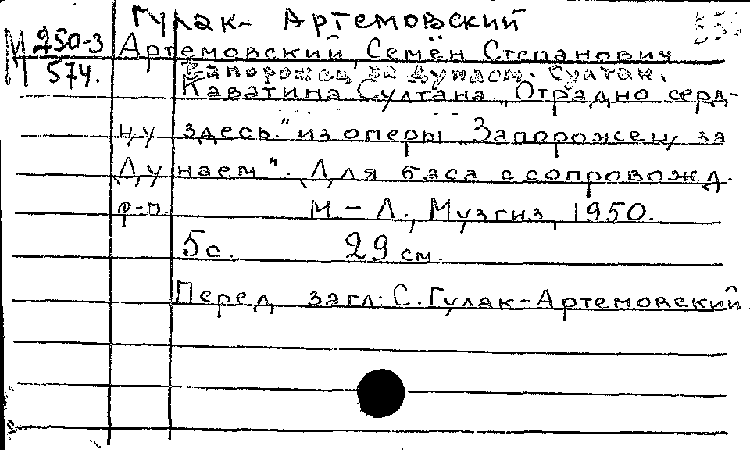 Гулак-Артемовский
М 250-3
574.
Артемовский, Семён Степанович
Запорожец за Дунаем. Султан.
Каватина Султана „Отрадно серд-
цу здесь" из оперы „Запорожец за
Дунаем". Для баса с сопровожд.
ф-п. М-Л., Музгиз, 1950.
5 с. 29 см.
Перед загл: С. Гулак-Артемовский